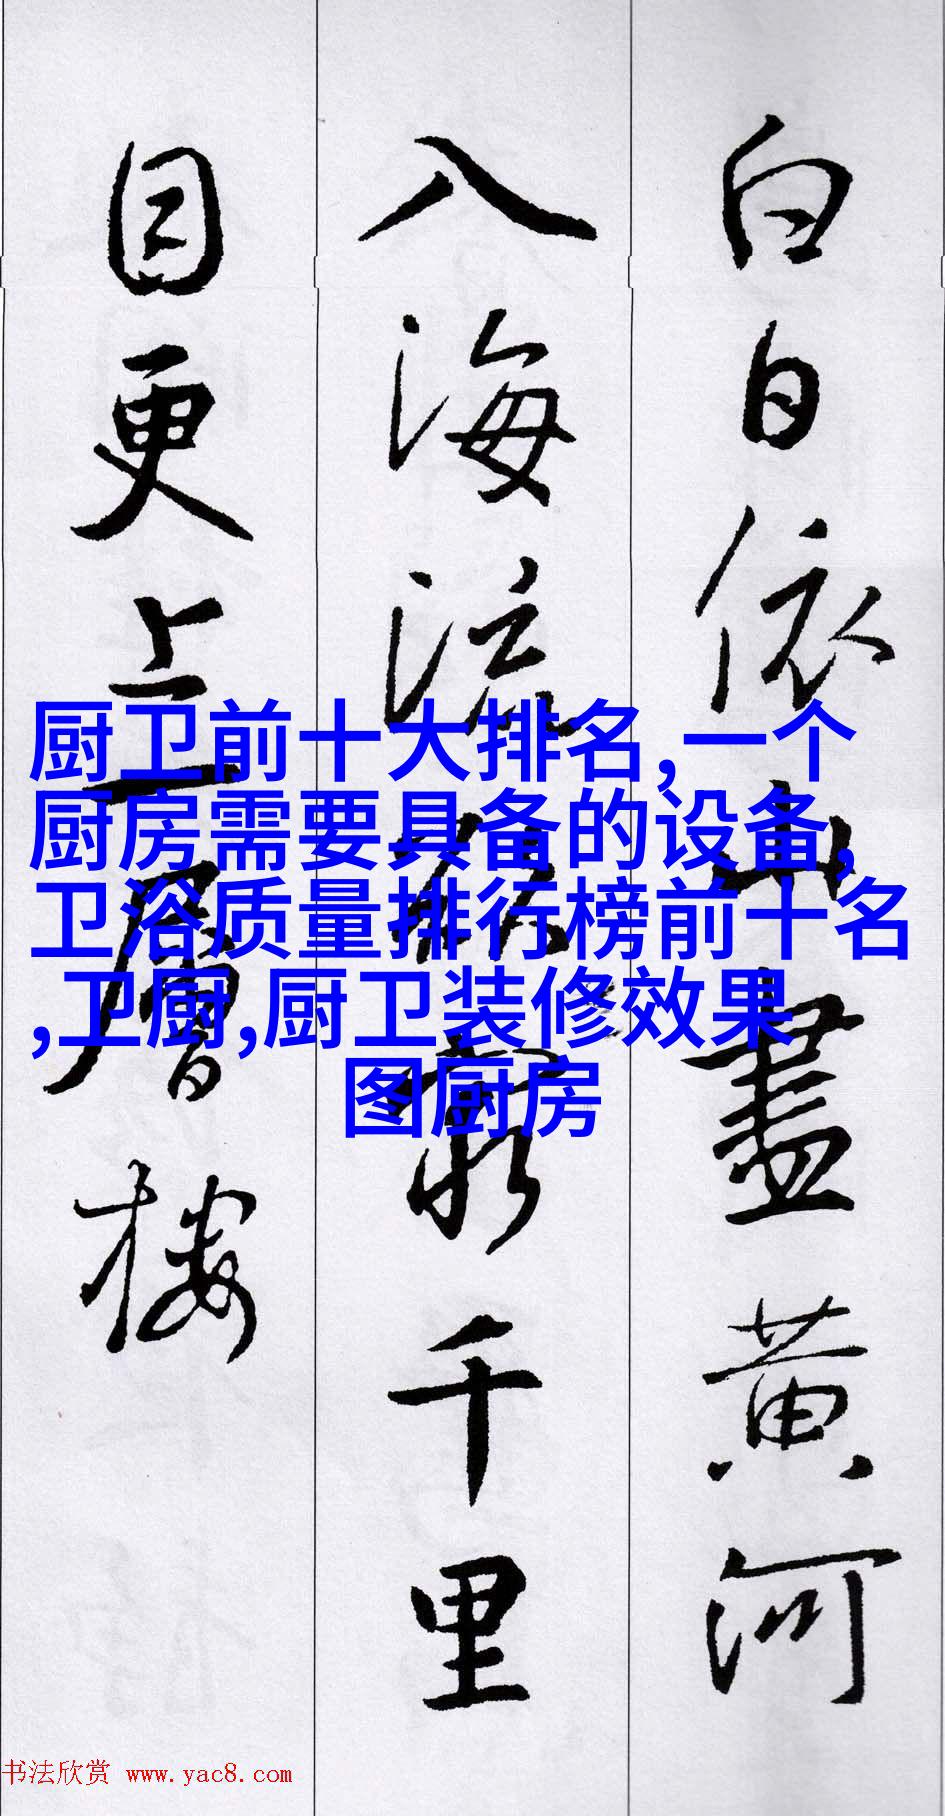 白日依山盡黄河
入海流欲窮千里
目更上一層樓
厨卫前十大排名,一个
厨房需要具备的设备,
卫浴质量排行榜前十名
,卫厨,厨卫装修效果
图厨房
书法欣赏 www.yac8.com